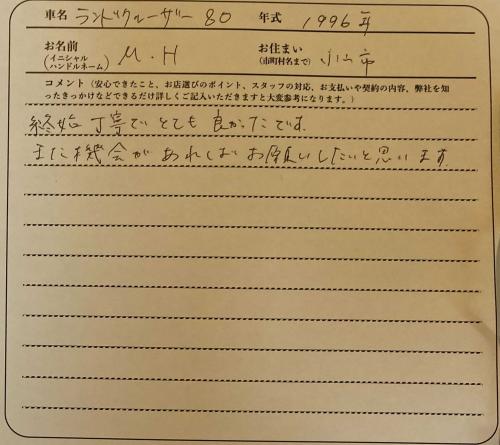 車名 ランドクルーザー80 年式 1996年
お名前 (イニシャル ハンドルネーム) M・H お住まい (市町村名まで) 小山市
コメント(安心できたこと、お店選びのポイント、スタッフの対応、お支払いや契約の内容、弊社を知
ったきっかけなどできるだけ詳しくご記入いただきますと大変参考になります。)
終始丁寧でとても良かったです。
また機会があればお願いしたいと思います。